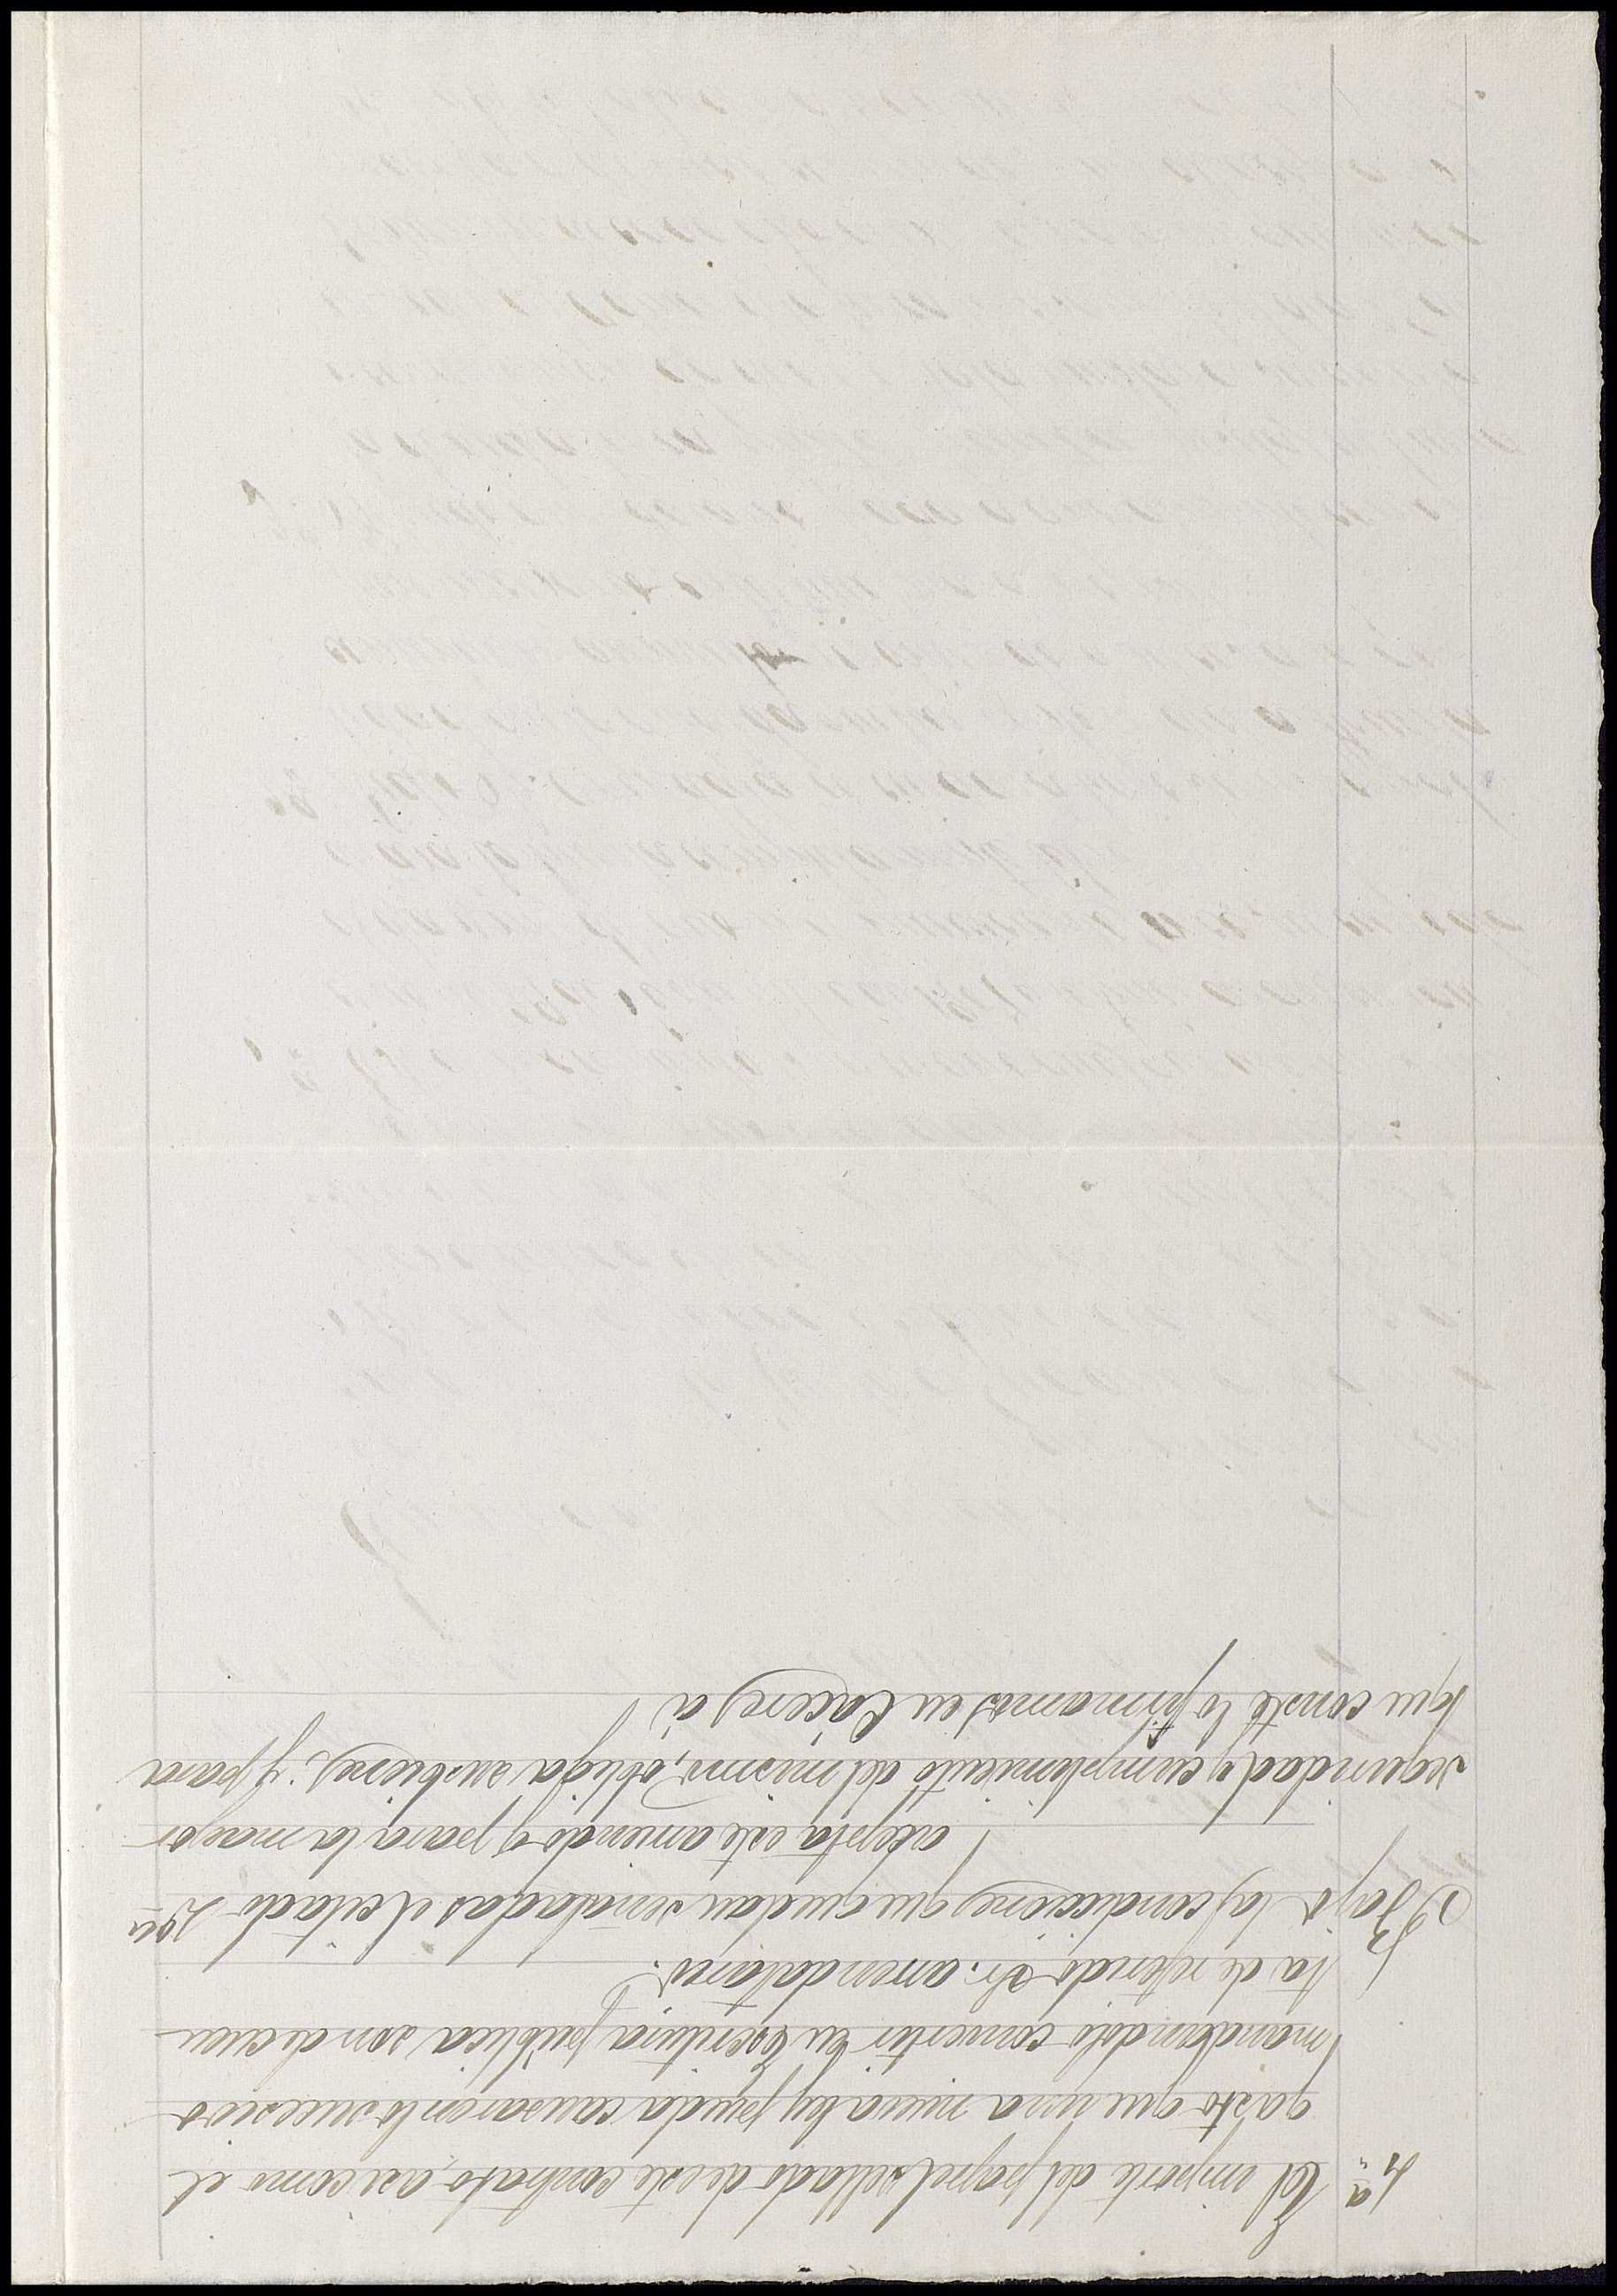 4ª El importe del papel sellado de este contrato, asi como el
gasto que una nueva ley pueda causar en lo sucesivo
mandandolo convertir en Escritura pública son de cuen
ta de referido Sr. arrendatario.
Bajo las condiciones que quedan señaladas el citado
acepta este arriendo y para la mayor
seguridad y cumplimiento del mismo, obliga sus bienes; y para
que conste lo firmamos en Cáceres á